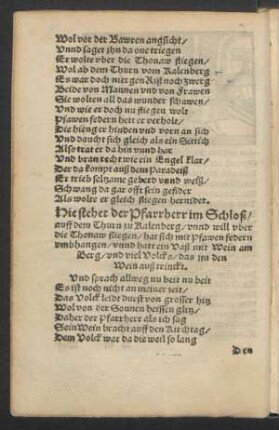 Wol vor der Bawren angsicht/
Vnnd saget jhn da one triegen
Er wolte vber die Thonaw fliegen/
Wol ab dem Thurn vom Kalenberg
Es war doch nie zgen Riß noch zwerg
Beide von Mannen vnd von Frawen
Sie wolten all das wunder schawen/
Vnd wie er doch nu fliegen wolt
Pfawen federn hett er verholt/
Die hieng er hinden vnd vorn an sich
Vnd daucht sich gleich als ein Sittich
Also trat er da hin vnnd har
Vnd bran recht wie ein Engel klar/
Der da kompt auß dem Paradeiß
Er trieb seltzame geberd vnnd weiß/
Schwang da gar offt sein gefider
Als wolte er gleich fliegen hernider.
Hie stehet der Pfarrherr im Schloß/
auff dem Thurn zu Kalenberg/ vnnd will vber
die Thonaw fliegen/ hat sich mit Pfawen federn
vmbhangen/ vnnd hatt ein Vaß mit Wein am
Berg/ vnd viel Volck's/ das jm den
Wein auß trinckt.
Vnd sprach allweg nu beit nu beit
Es ist noch nicht an meiner zeit/
Das Volck leidt durst von grosser hitz
Wol von der Sonnen heissen glitz/
Daher der Pfarrherr als ich sag
Sein Wein bracht auff den Kirchtag/
Dem Volck war da die weil so lang
Den